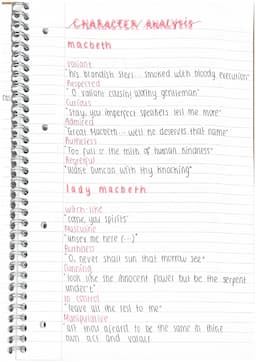 CHARACTER ANALYSIS
macbeth
valiant
"his brandish steel... smoked with bloody execution"
Respected
"O valiant cousin! worthy gentleman"
Curious
"Stay, you imperfect speakers tell me more"
Admired
"Great Macbeth... well he deserves that name"
Ruthless
"Too full o' the milk of human kindness"
Regretful
"Wake Duncan with thy knocking"
lady macbeth
witch-like
"come, you spirits"
Masculine
"unsex me here (...)"
Ruthless
"O, never shall sun that morrow see"
Cunning
"look like the innocent flower but be the serpent
under't"
In control
"leave all the rest to me"
Manipulative
"art thou afeard to be the same in thine
own act and valour